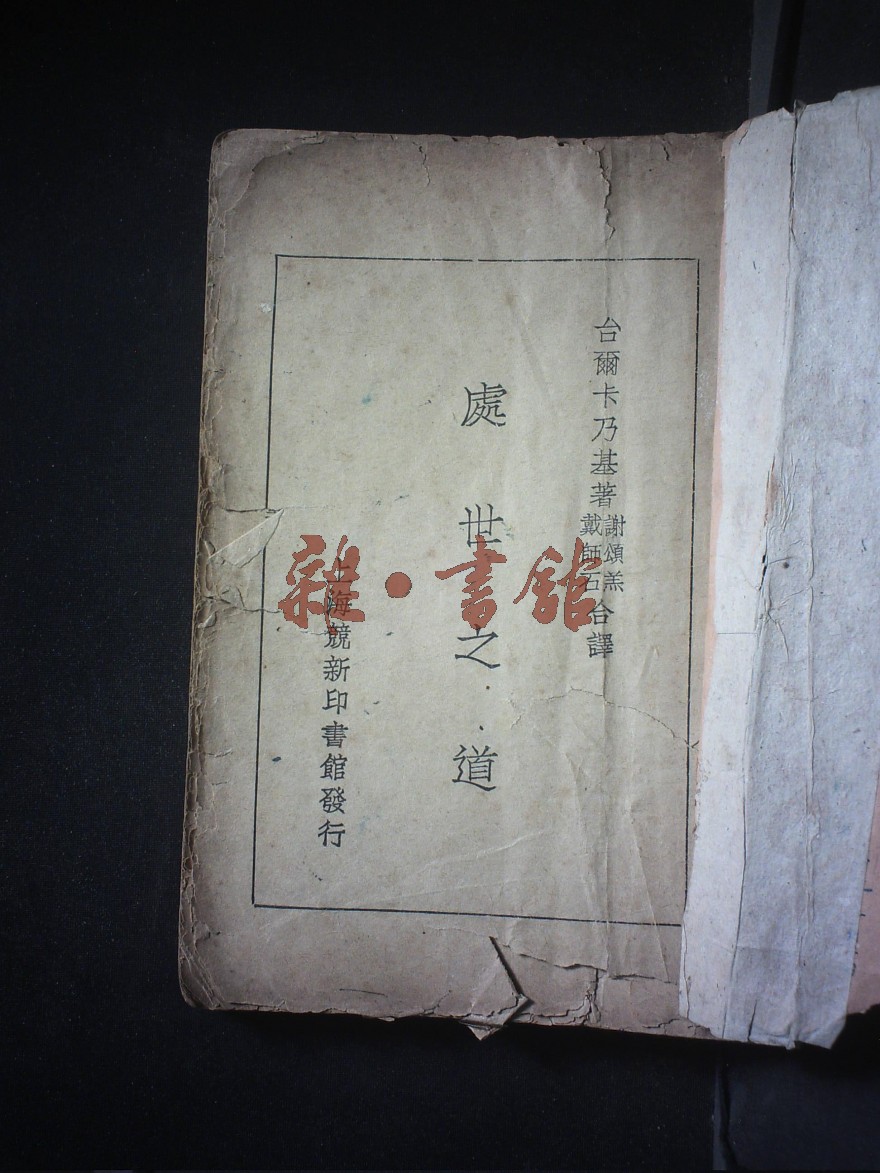 台爾卡乃基著 謝頌羔 戴師石 合譯
處世之道
上海競新印書館發行
雜·書館